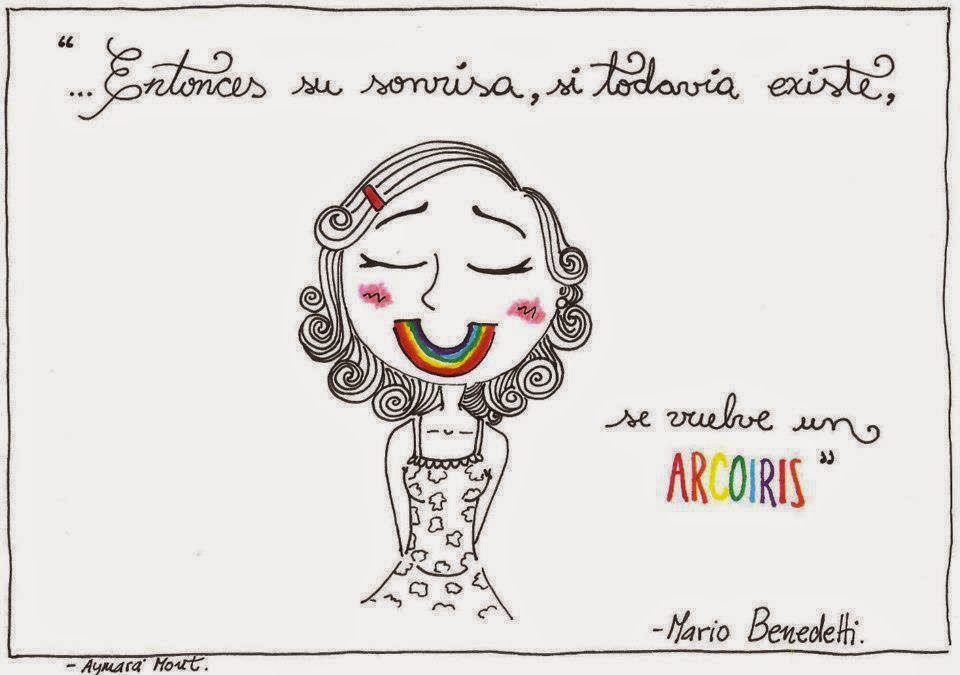 “
... Entonces su sonrisa, si todavia existe,
se vuelve un
ARCOIRIS ”
-Mario Benedetti.
- Aymará Mont.